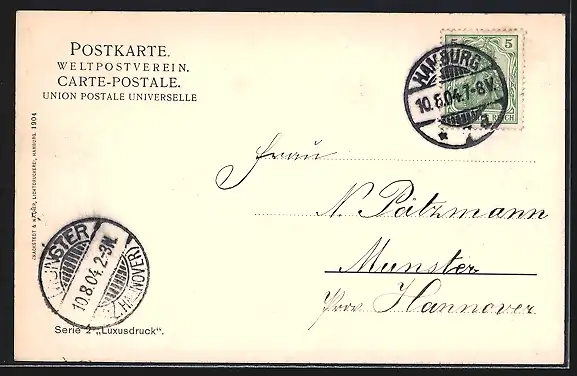 POSTKARTE.
WELTPOSTVEREIN.
CARTE-POSTALE.
UNION POSTALE UNIVERSELLE
5 5
HAMBURG
10.8.04.7-8V.
REICH
Frau
N. Pätzmann
Munster
Prov. Hannover
KNACKSTEDT & NÄTHER, LICHTDRUCKEREI, HAMBURG. 1904
MUNSTER
10.8.04.2-3N.
HANNOVER)
Serie 2 „Luxusdruck".